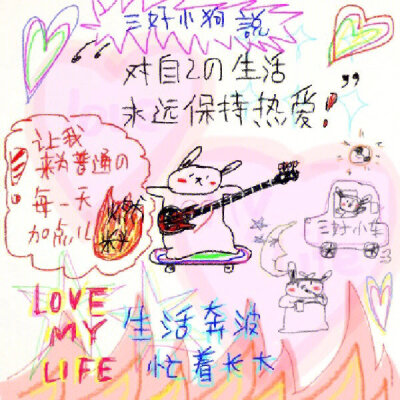 三好小狗 說
“对自己の生活
永远保持热爱！”
让我
来为普通の
每一天
加点儿
燃
三好小车
LOVE
MY
LIFE
生活奔波
忙着长大